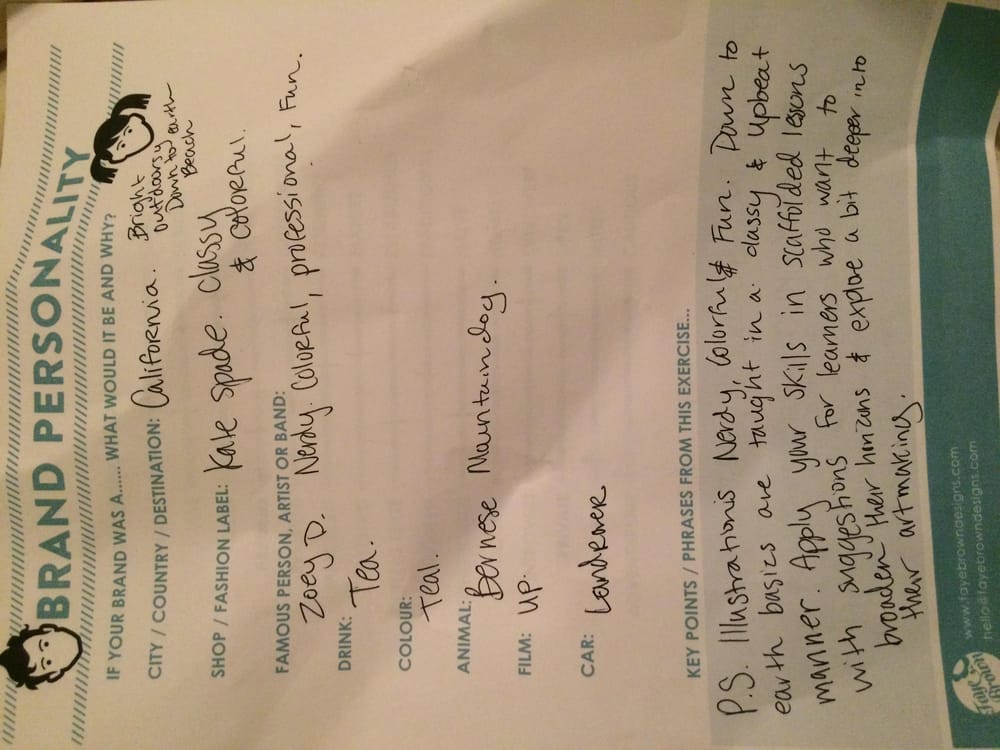 BRAND PERSONALITY
IF YOUR BRAND WAS A...... WHAT WOULD IT BE AND WHY?
CITY / COUNTRY / DESTINATION: California. Bright
outdoorsy
Down to earth
Beach
SHOP / FASHION LABEL: Kate Spade. classy
& colorful.
FAMOUS PERSON, ARTIST OR BAND:
Zoey D. Nerdy. Colorful, professional, Fun.
DRINK: Tea.
COLOUR:
Teal.
ANIMAL: Bernese Mountaindog.
FILM: UP.
CAR: Landrover
KEY POINTS / PHRASES FROM THIS EXERCISE...
P.S. Illustration is Nerdy, Colorful & Fun. Down to
earth basics are taught in a classy & upbeat
manner. Apply your skills in scaffolded lessons
with suggestions for learners who want to
broaden their horizons & explore a bit deeper into
their artmaking.
www.fayebrowndesigns.com
hello@fayebrowndesigns.com
Faye
Brown